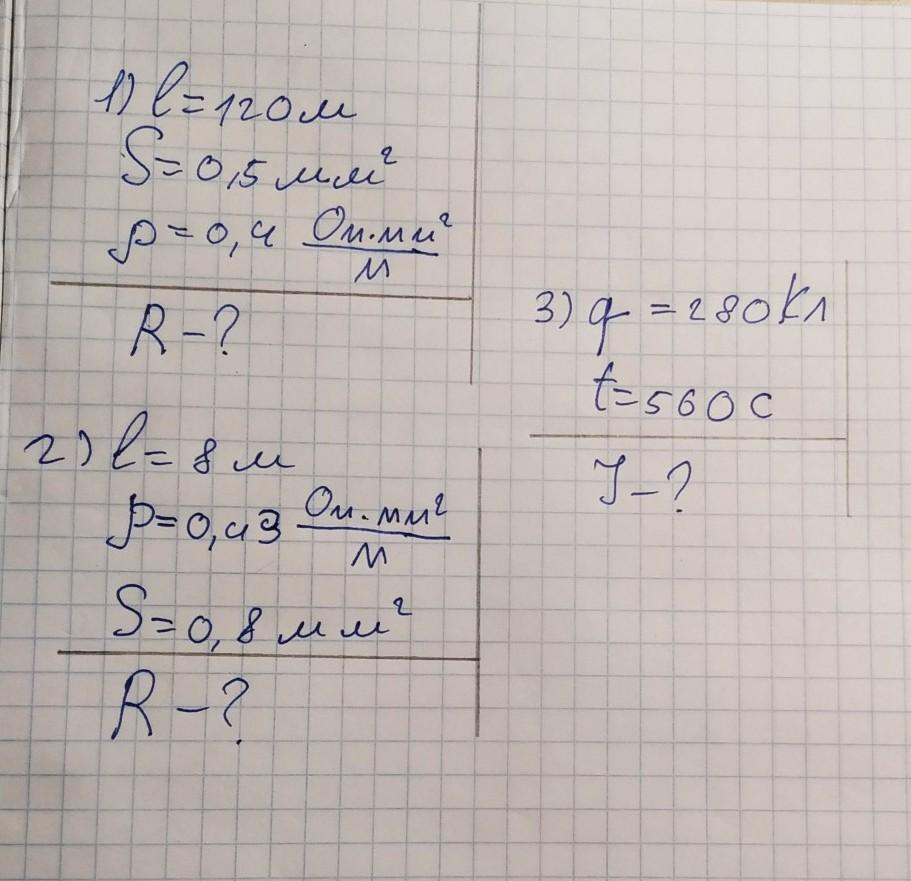 1) l = 120 м
S = 0,5 мм²
ρ = 0,4 Ом·мм²/м
R - ?
2) l = 8 м
ρ = 0,43 Ом·мм²/м
S = 0,8 мм²
R - ?
3) q = 280 Кл
t = 560 с
J - ?